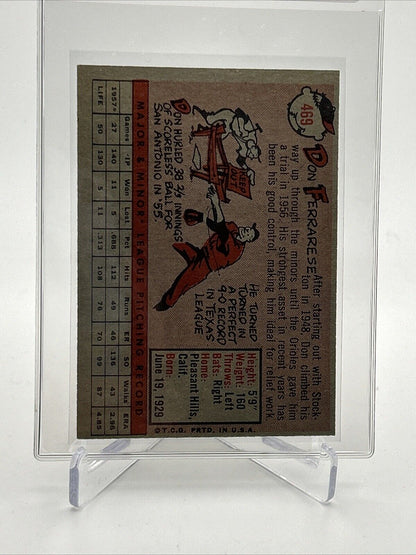 469
DON FERRARESE
After starting out with Stock-
ton in 1948, Don climbed his
way up through the minors until the Orioles gave him
a trial in 1956. His strongest asset in recent years has
been his good control, making him ideal for relief work.
KEEP OUT
DON HURLED 38 3/4 INNINGS
OF SCORELESS BALL FOR
SAN ANTONIO IN '55.
HE TURNED
TURNED IN
A PERFECT
9-0 RECORD
IN TEXAS
LEAGUE
Height: 5'9"
Weight: 160
Throws: Left
Bats: Right
Home:
Pleasant Hills,
Calif.
Born:
June 19, 1929
MAJOR & MINOR LEAGUE PITCHING RECORD
Games IP Won Lost Pct Hits Runs ER SO Walks ERA
1957* 27 140 11 5 .688 112 49 46 138 87 2.96
LIFE 50 130 5 11 .313 108 78 70 99 43 4.85
©T.C.G. PRTD. IN U.S.A.